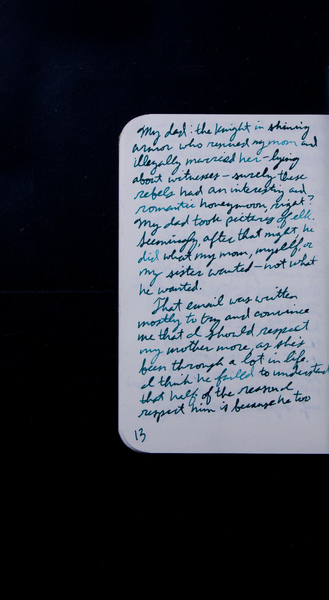 My dad: the knight in shining
armor who rescued my mom and
illegally married her – lying
about witnesses – surely these
rebels had an interesting and
romantic honeymoon right?
My dad took pictures of elk.
Seemingly, after that night, he
did what my mom, myself, or
my sister wanted – not what
he wanted.
That email was written
mostly to try and convince
me that I should respect
my mother more, as she's
been through a lot in life.
I think he failed to understand
that half of the reason I
respect him is because he too
13